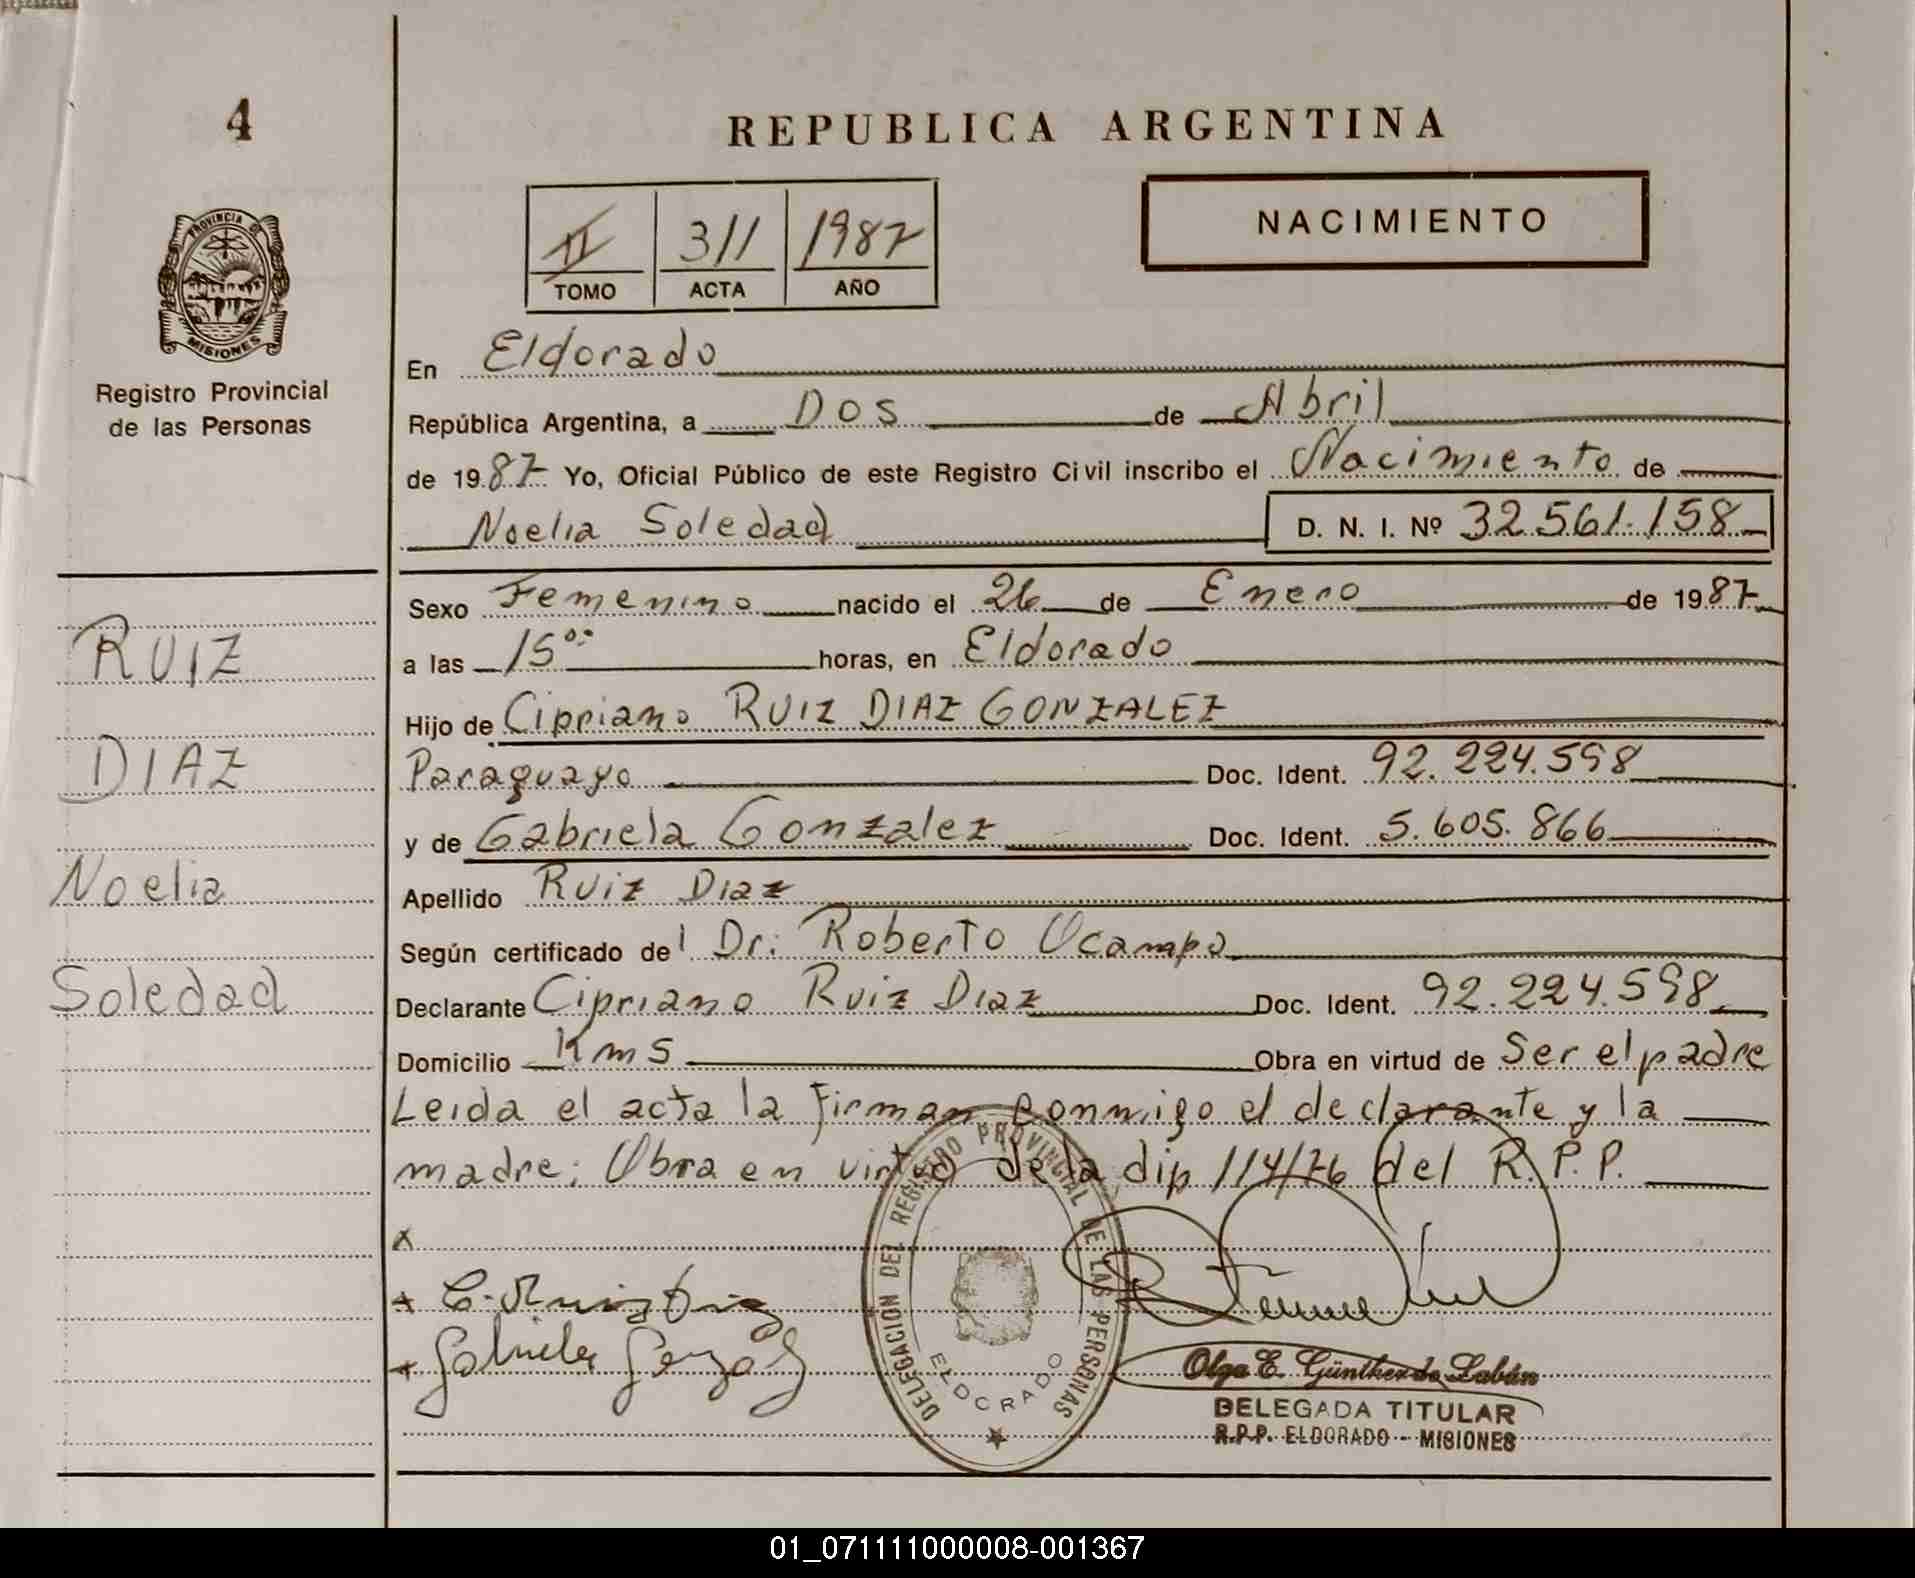 4
REPUBLICA ARGENTINA
PROVINCIA DE
MISIONES
Registro Provincial
de las Personas
II 311 1987
TOMO ACTA AÑO
NACIMIENTO
En Eldorado
República Argentina, a Dos de Abril
de 1987 Yo, Oficial Público de este Registro Civil inscribo el Nacimiento de
Noelia Soledad D. N. I. Nº 32.561.158
Sexo Femenino nacido el 26 de Enero de 1987
a las 15 horas, en Eldorado
Hijo de Cipriano RUIZ DIAZ GONZALEZ
Paraguayo Doc. Ident. 92.224.598
y de Gabriela Gonzalez Doc. Ident. 5.605.866
Apellido Ruiz Diaz
Según certificado del Dr: Roberto Ocampo
Declarante Cipriano Ruiz Diaz Doc. Ident. 92.224.598
Domicilio Km 5 Obra en virtud de Ser el padre
Leida el acta la Firman conmigo el declarante y la
madre; Obra en virtud de la dip 114/76 del R.P.P.
RUIZ
DIAZ
Noelia
Soledad
C. Ruiz Diaz
Gabriela Gonzalez
DELEGACION DEL REGISTRO PROVINCIAL DE LAS PERSONAS
ELDORADO
Olga E. Günther de Labán
DELEGADA TITULAR
R.P.P. ELDORADO - MISIONES
01_071111000008-001367